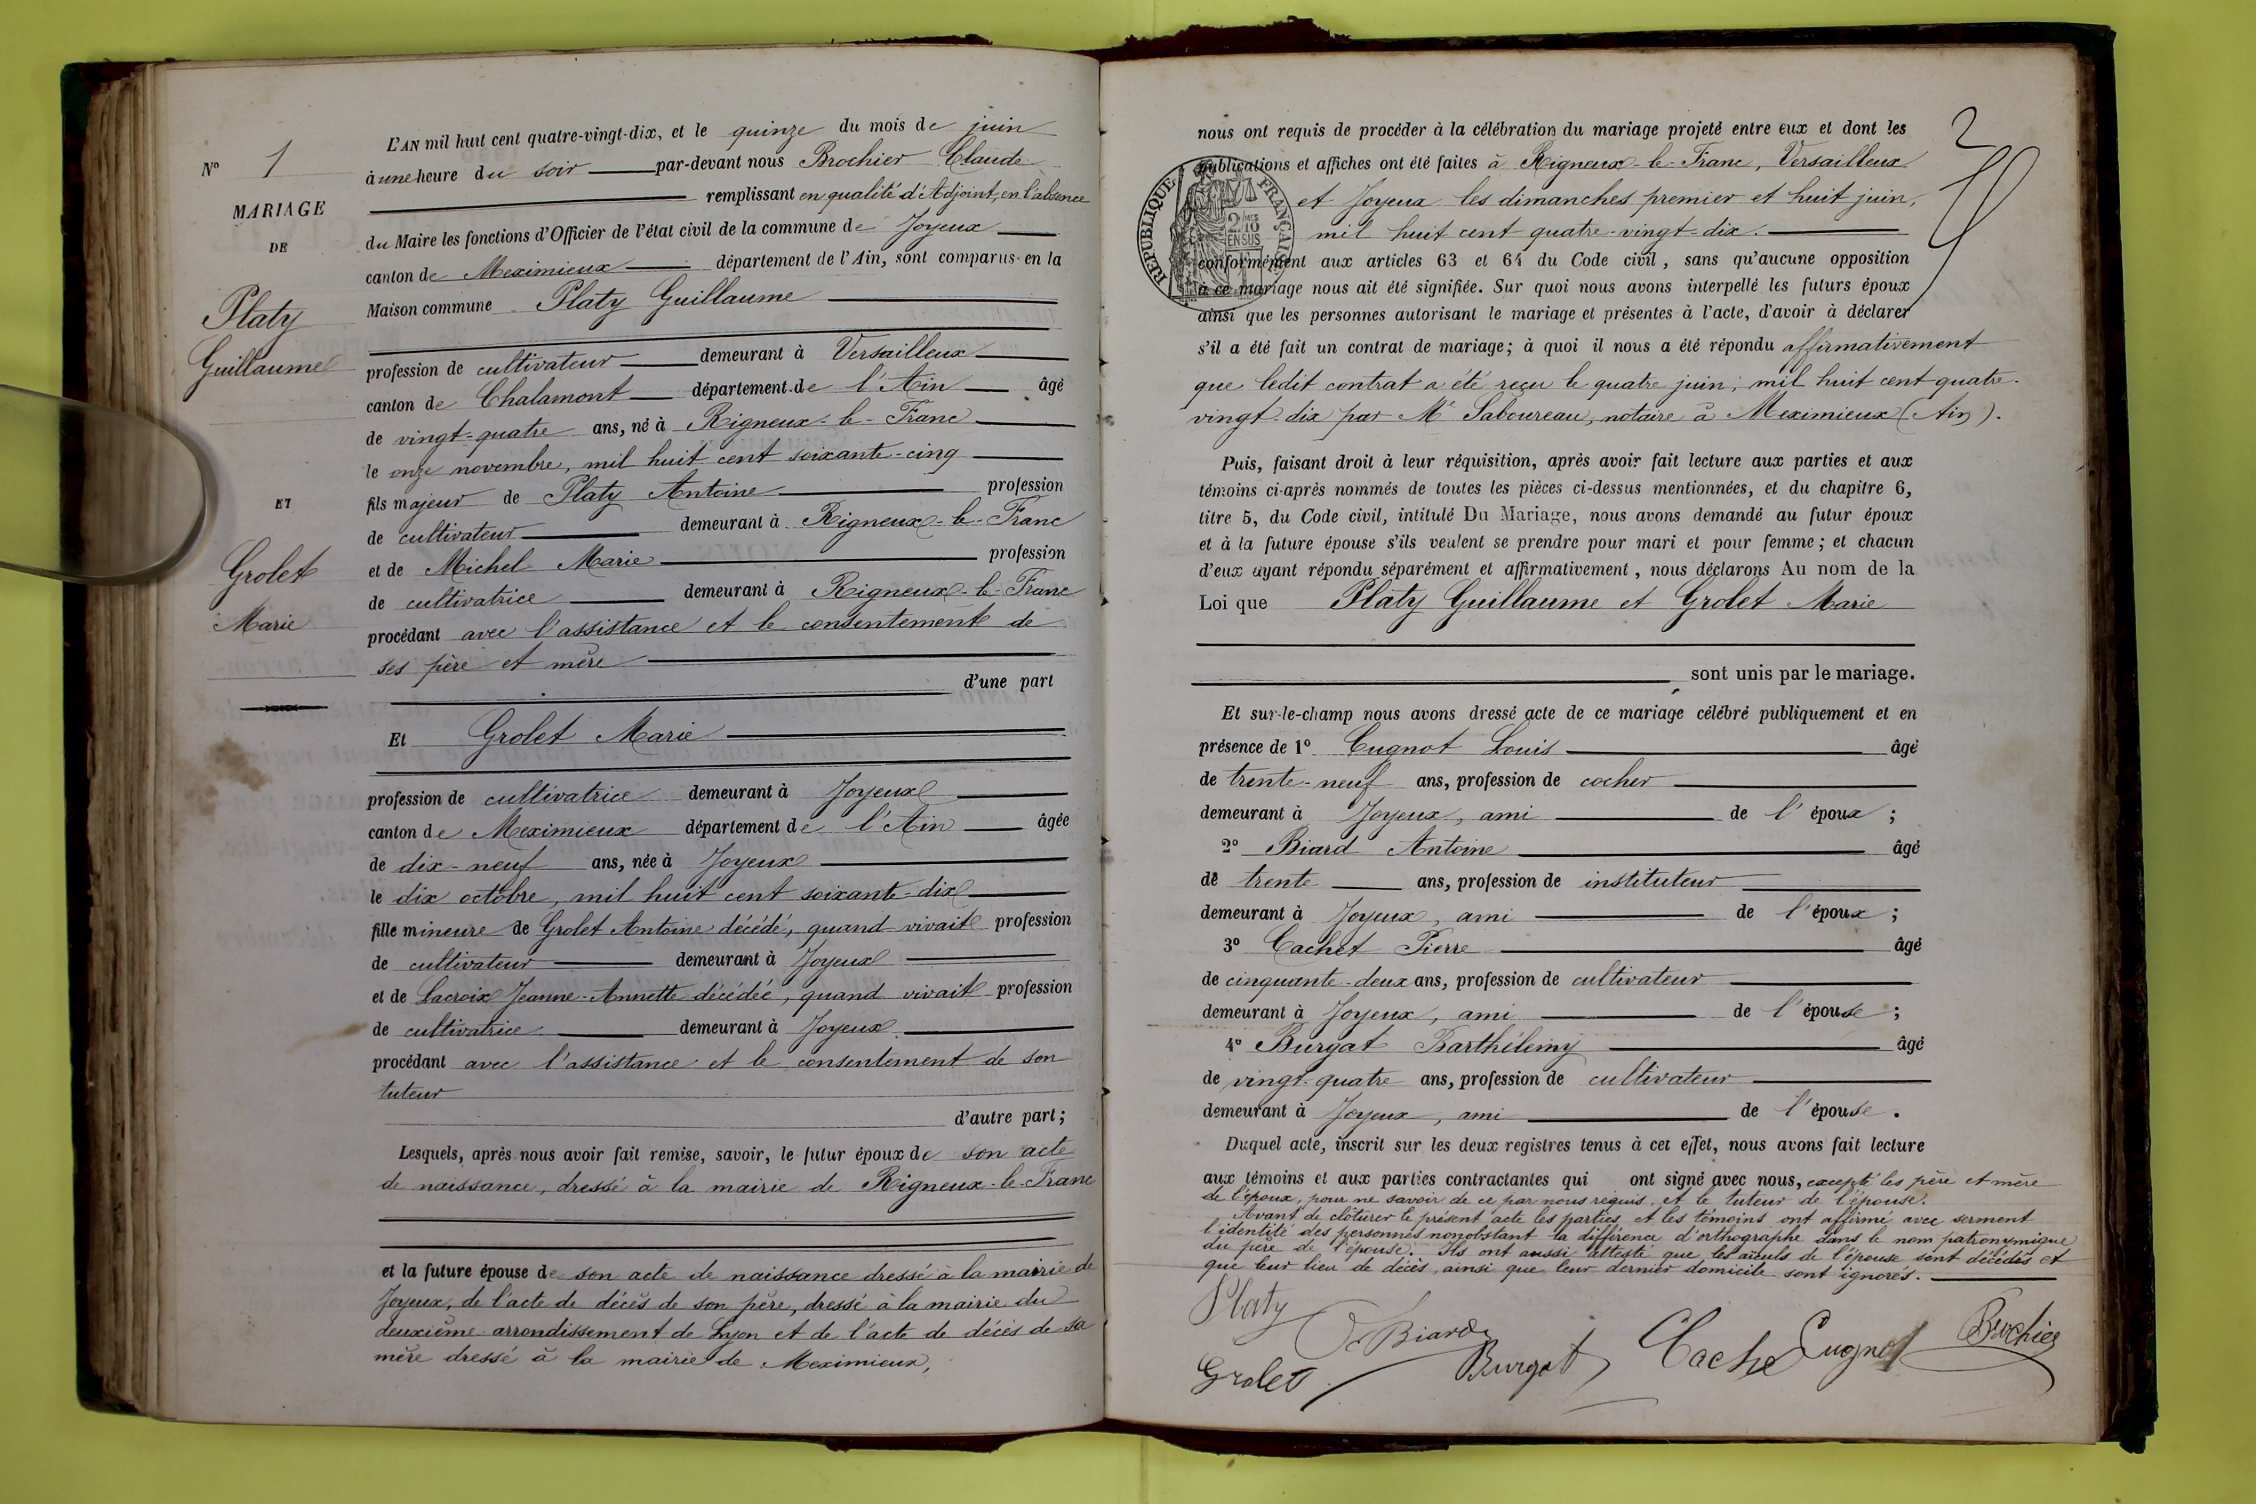 N° 1
MARIAGE
DE
Platy
Guillaume
ET
Grolet
Marie
L'AN mil huit cent quatre-vingt-dix, et le quinze du mois de juin
à une heure du soir par-devant nous Brochier Claude
remplissant en qualité d'Adjoint, en l'absence
du Maire les fonctions d'Officier de l'état civil de la commune de Joyeux
canton de Meximieux département de l'Ain, sont comparus en la
Maison commune Platy Guillaume
profession de cultivateur demeurant à Versailleux
canton de Chalamont département de l'Ain âgé
de vingt-quatre ans, né à Rigneux-le-Franc
le onze novembre, mil huit cent soixante-cinq
fils majeur de Platy Antoine profession
de cultivateur demeurant à Rigneux-le-Franc
et de Michel Marie profession
de cultivatrice demeurant à Rigneux-le-Franc
procédant avec l'assistance et le consentement de
ses père et mère
d'une part
Et Grolet Marie
profession de cultivatrice demeurant à Joyeux
canton de Meximieux département de l'Ain âgée
de dix-neuf ans, née à Joyeux
le dix octobre, mil huit cent soixante-dix
fille mineure de Grolet Antoine décédé, quand vivait profession
de cultivateur demeurant à Joyeux
et de Lacroix Jeanne-Annette décédée, quand vivait profession
de cultivatrice demeurant à Joyeux
procédant avec l'assistance et le consentement de son
tuteur
d'autre part;
Lesquels, après nous avoir fait remise, savoir, le futur époux de son acte
de naissance, dressé à la mairie de Rigneux-le-Franc
et la future épouse de son acte de naissance dressé à la mairie de
Joyeux, de l'acte de décès de son père, dressé à la mairie du
deuxième arrondissement de Lyon et de l'acte de décès de sa
mère dressé à la mairie de Meximieux,
2
nous ont requis de procéder à la célébration du mariage projeté entre eux et dont les
publications et affiches ont été faites à Rigneux-le-Franc, Versailleux
et Joyeux les dimanches premier et huit juin,
mil huit cent quatre-vingt-dix.
RÉPUBLIQUE FRANÇAISE
2/10 EN SUS
conformément aux articles 63 et 64 du Code civil, sans qu'aucune opposition
à ce mariage nous ait été signifiée. Sur quoi nous avons interpellé les futurs époux
ainsi que les personnes autorisant le mariage et présentes à l'acte, d'avoir à déclarer
s'il a été fait un contrat de mariage; à quoi il nous a été répondu affirmativement
que ledit contrat a été reçu le quatre juin, mil huit cent quatre-
vingt-dix par Me Saboureau, notaire à Meximieux (Ain).
Puis, faisant droit à leur réquisition, après avoir fait lecture aux parties et aux
témoins ci-après nommés de toutes les pièces ci-dessus mentionnées, et du chapitre 6,
titre 5, du Code civil, intitulé Du Mariage, nous avons demandé au futur époux
et à la future épouse s'ils veulent se prendre pour mari et pour femme; et chacun
d'eux ayant répondu séparément et affirmativement, nous déclarons Au nom de la
Loi que Platy Guillaume et Grolet Marie
sont unis par le mariage.
Et sur-le-champ nous avons dressé acte de ce mariage célébré publiquement et en
présence de 1° Cugnot Louis âgé
de trente-neuf ans, profession de cocher
demeurant à Joyeux, ami de l'époux;
2° Biard Antoine âgé
de trente ans, profession de instituteur
demeurant à Joyeux, ami de l'époux;
3° Cachet Pierre âgé
de cinquante-deux ans, profession de cultivateur
demeurant à Joyeux, ami de l'épouse;
4° Burgat Barthélemy âgé
de vingt-quatre ans, profession de cultivateur
demeurant à Joyeux, ami de l'épouse.
Duquel acte, inscrit sur les deux registres tenus à cet effet, nous avons fait lecture
aux témoins et aux parties contractantes qui ont signé avec nous, excepté les père et mère
de l'époux, pour ne savoir de ce par nous requis, et le tuteur de l'épouse.
Avant de clôturer le présent acte les parties et les témoins ont affirmé avec serment
l'identité des personnes nonobstant la différence d'orthographe dans le nom patronymique
du père de l'épouse. Ils ont aussi attesté que les aïeuls de l'épouse sont décédés et
que leur lieu de décès, ainsi que leur dernier domicile sont ignorés.
Platy Biard Cachet Cugnot Brochier
Grolet Burgat